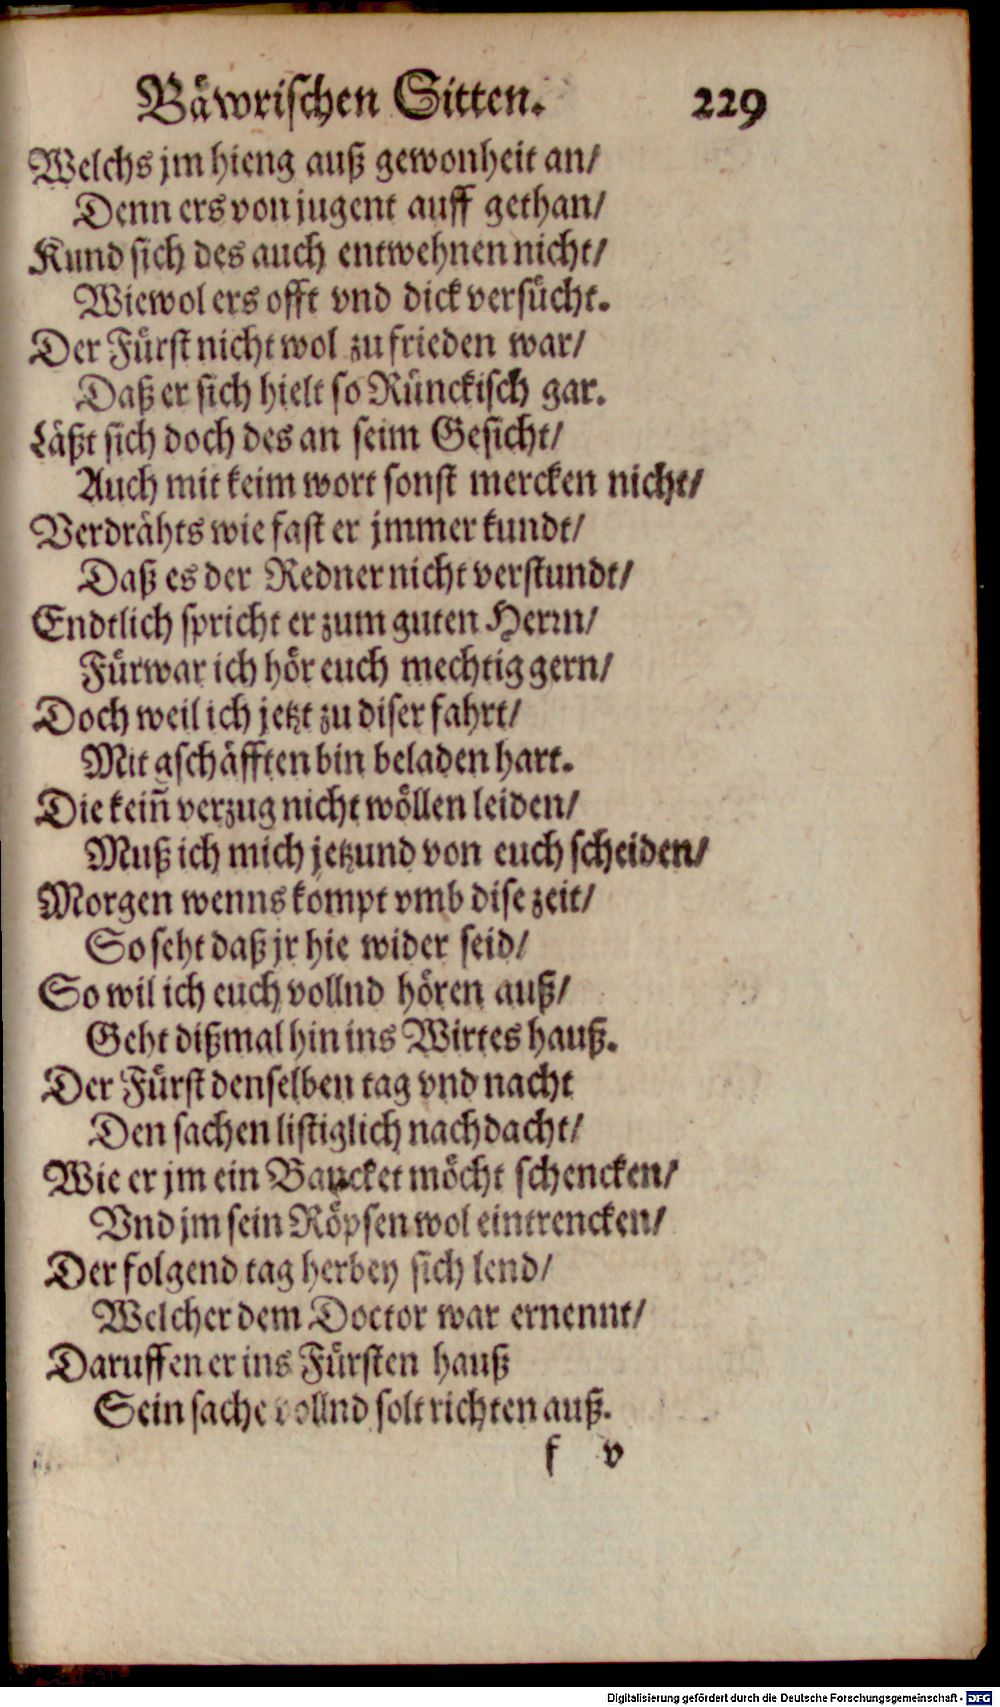 Bäwrischen Sitten. 229
Welchs jm hieng auß gewonheit an/
Denn ers von jugent auff gethan/
Kund sich des auch entwehnen nicht/
Wiewol ers offt vnd dick versücht.
Der Fürst nicht wol zu frieden war/
Daß er sich hielt so Rünckisch gar.
Läßt sich doch des an seim Gesicht/
Auch mit keim wort sonst mercken nicht/
Verdrähts wie fast er jmmer kundt/
Daß es der Redner nicht verstundt/
Endtlich spricht er zum guten Herrn/
Fürwar ich hör euch mechtig gern/
Doch weil ich jetzt zu diser fahrt/
Mit gschäfften bin beladen hart.
Die keiñ verzug nicht wöllen leiden/
Muß ich mich jetzund von euch scheiden/
Morgen wenns kompt vmb dise zeit/
So seht daß jr hie wider seid/
So wil ich euch vollnd hören auß/
Geht dißmal hin ins Wirtes hauß.
Der Fürst denselben tag vnd nacht
Den sachen listiglich nachdacht/
Wie er jm ein Bancket möcht schencken/
Vnd jm sein Röpsen wol eintrencken/
Der folgend tag herbey sich lend/
Welcher dem Doctor war ernennt/
Daruffen er ins Fürsten hauß
Sein sache vollnd solt richten auß.
f v
Digitalisierung gefördert durch die Deutsche Forschungsgemeinschaft - DFG